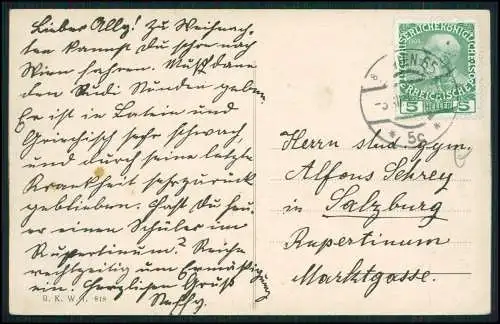 Lieber Ally! Zu Weihnach-
ten kannst du schon nach
Wien fahren. Mußt dann
den Rudi Stunden geben.
Er ist in Latein und
Griechisch sehr schwach,
und durch seine letzte
Krankheit sehr zurück
geblieben. Hast Du heu-
er einen Schüler im
Rupertinum? Reiche
rechtzeitig um Ermäßigung
ein. Herzlichen Gruß
B. K. W. I. 818
KAISERLICHE KÖNIGLICHE
ÖSTERREICHISCHE POST
5 HELLER 5
5c
Herrn stud. gym.
Alfons Schrey
in Salzburg
Rupertinum
Marktgasse.